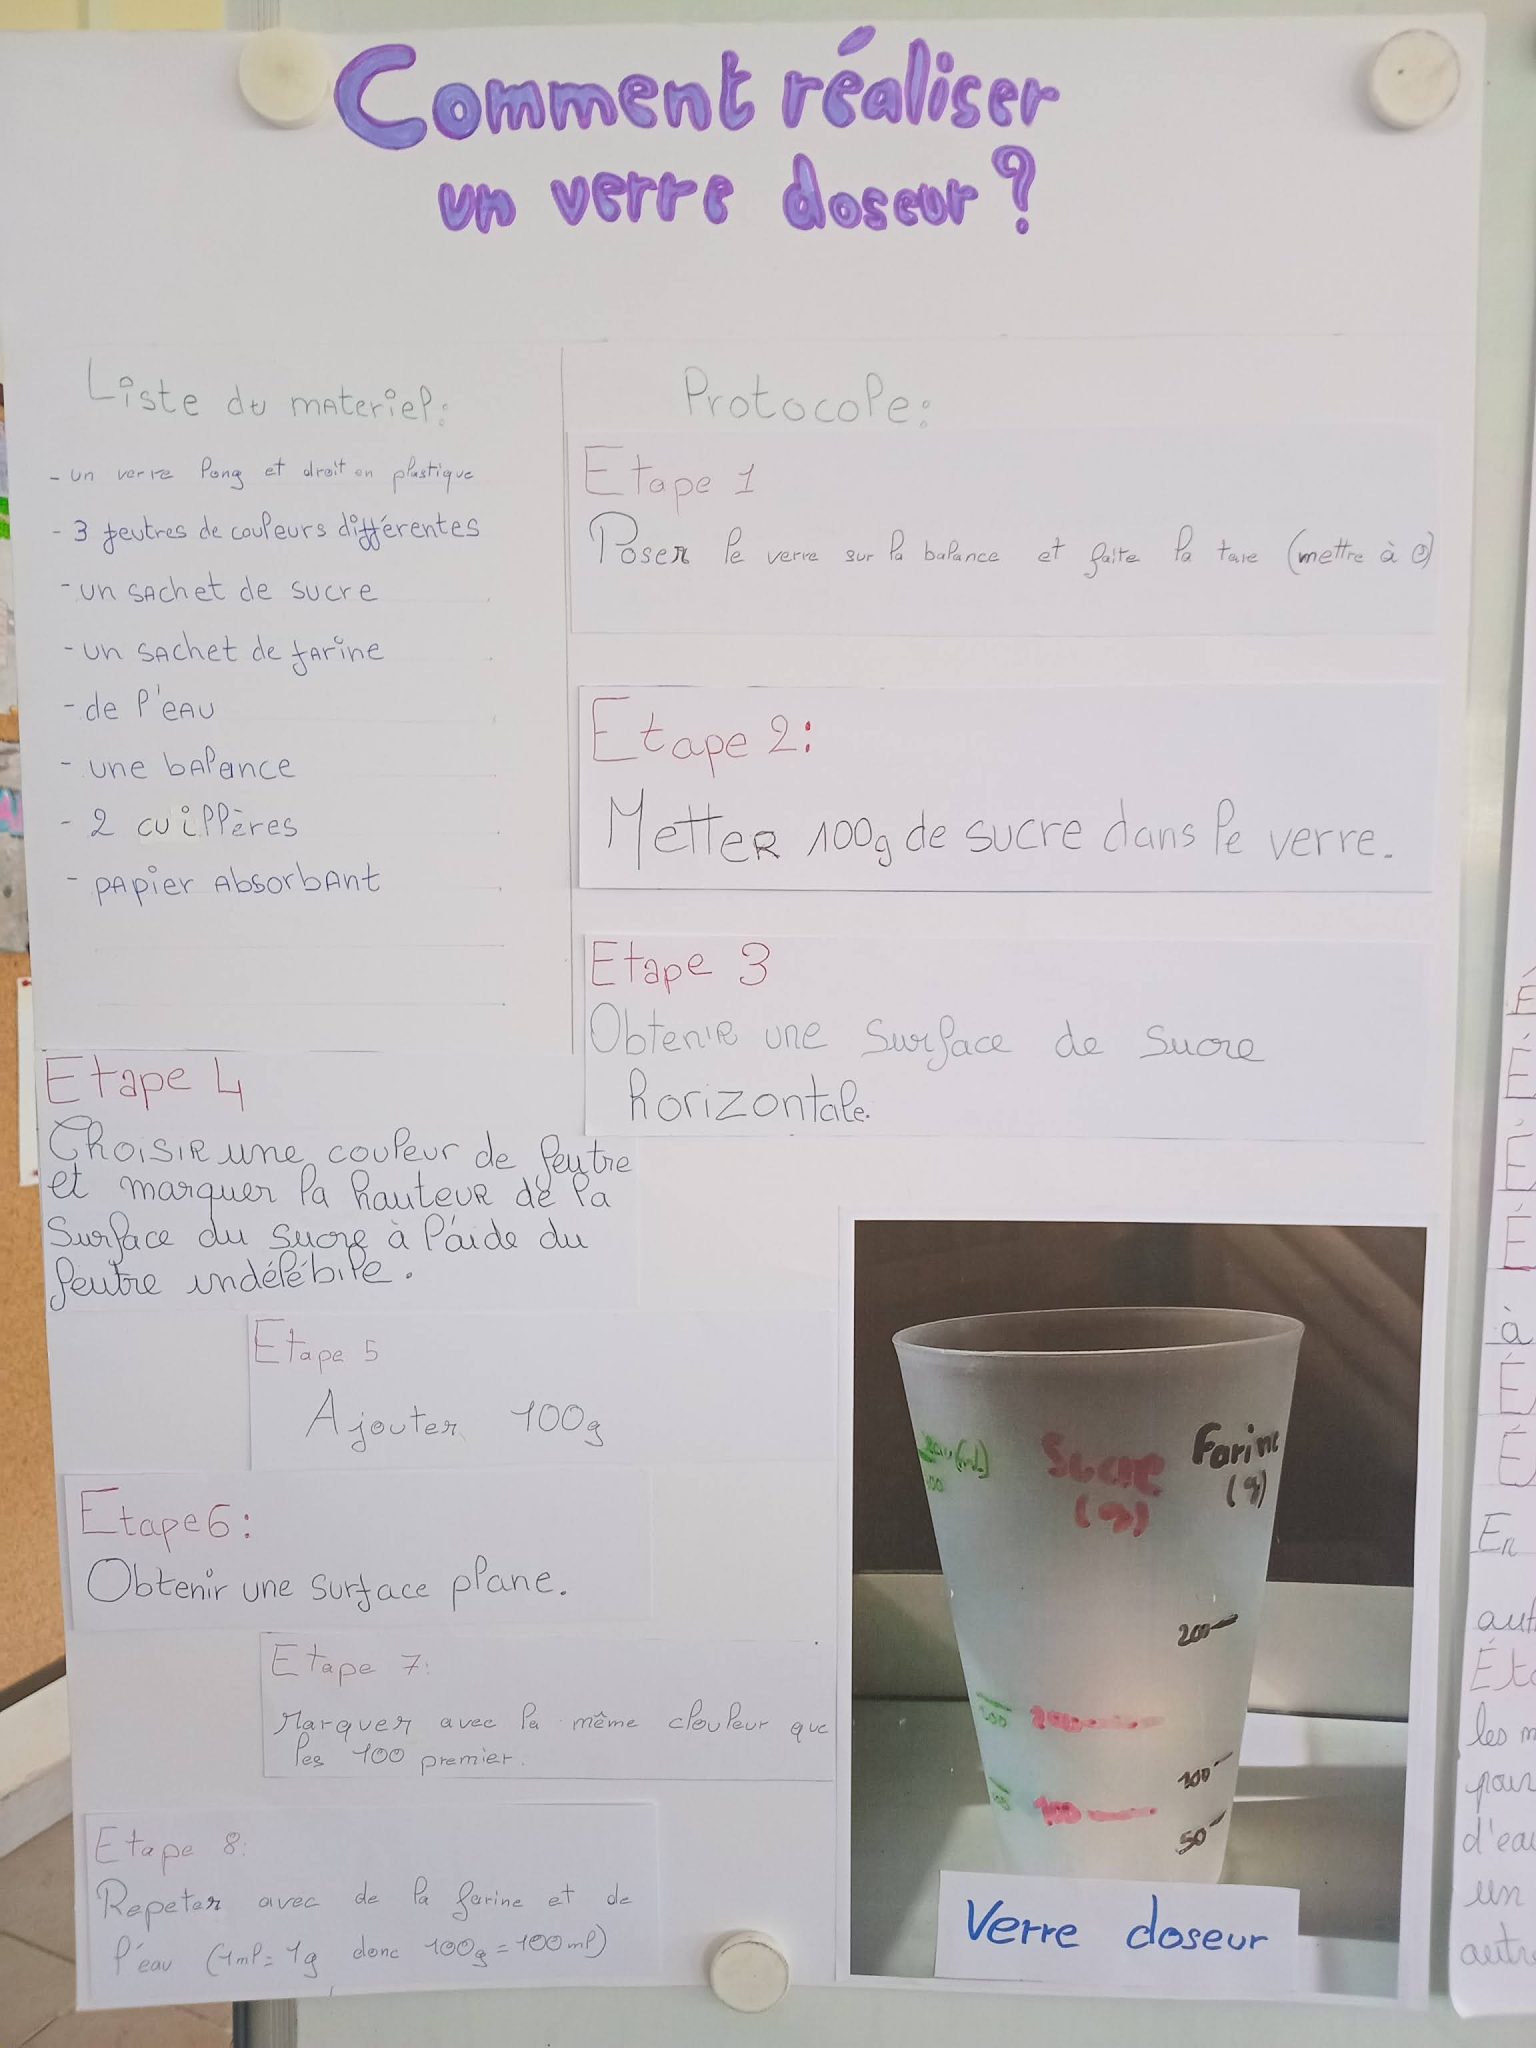 Comment réaliser
un verre doseur ?
Liste du materiel:
- un verre long et droit en plastique
- 3 feutres de couleurs différentes
- un sachet de sucre
- un sachet de farine
- de l'eau
- une balance
- 2 cuillères
- papier absorbant
Protocole:
Etape 1
Poser le verre sur la balance et faite la tare (mettre à 0)
Etape 2:
Metter 100g de sucre dans le verre.
Etape 3
Obtenir une surface de sucre
horizontale.
Etape 4
Choisir une couleur de feutre
et marquer la hauteur de la
surface du sucre à l'aide du
feutre indélébile.
Etape 5
Ajouter 100g
Etape 6:
Obtenir une surface plane.
Etape 7:
Marquer avec la même clouleur que
les 100 premier.
Etape 8:
Repeter avec de la farine et de
l'eau (1ml = 1g donc 100g = 100ml)
eau (mL)
Sucre
(g)
Farine
(g)
200
200
200
100
100
100
50
Verre doseur
É
É
É
É
à
É
É
En
les m
pour
d'eau
un
autre